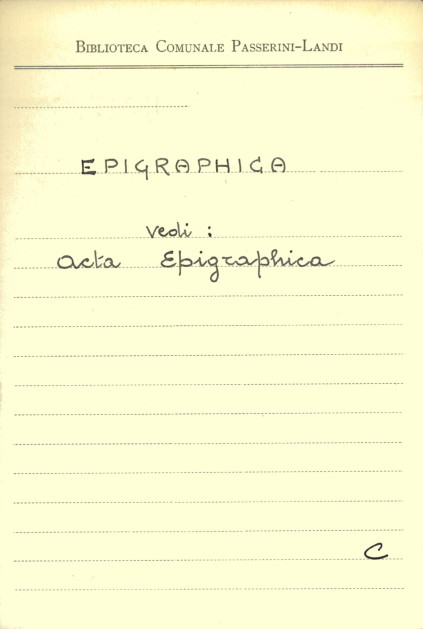 Biblioteca Comunale Passerini-Landi
EPIGRAPHICA
vedi :
Acta Epigraphica
C